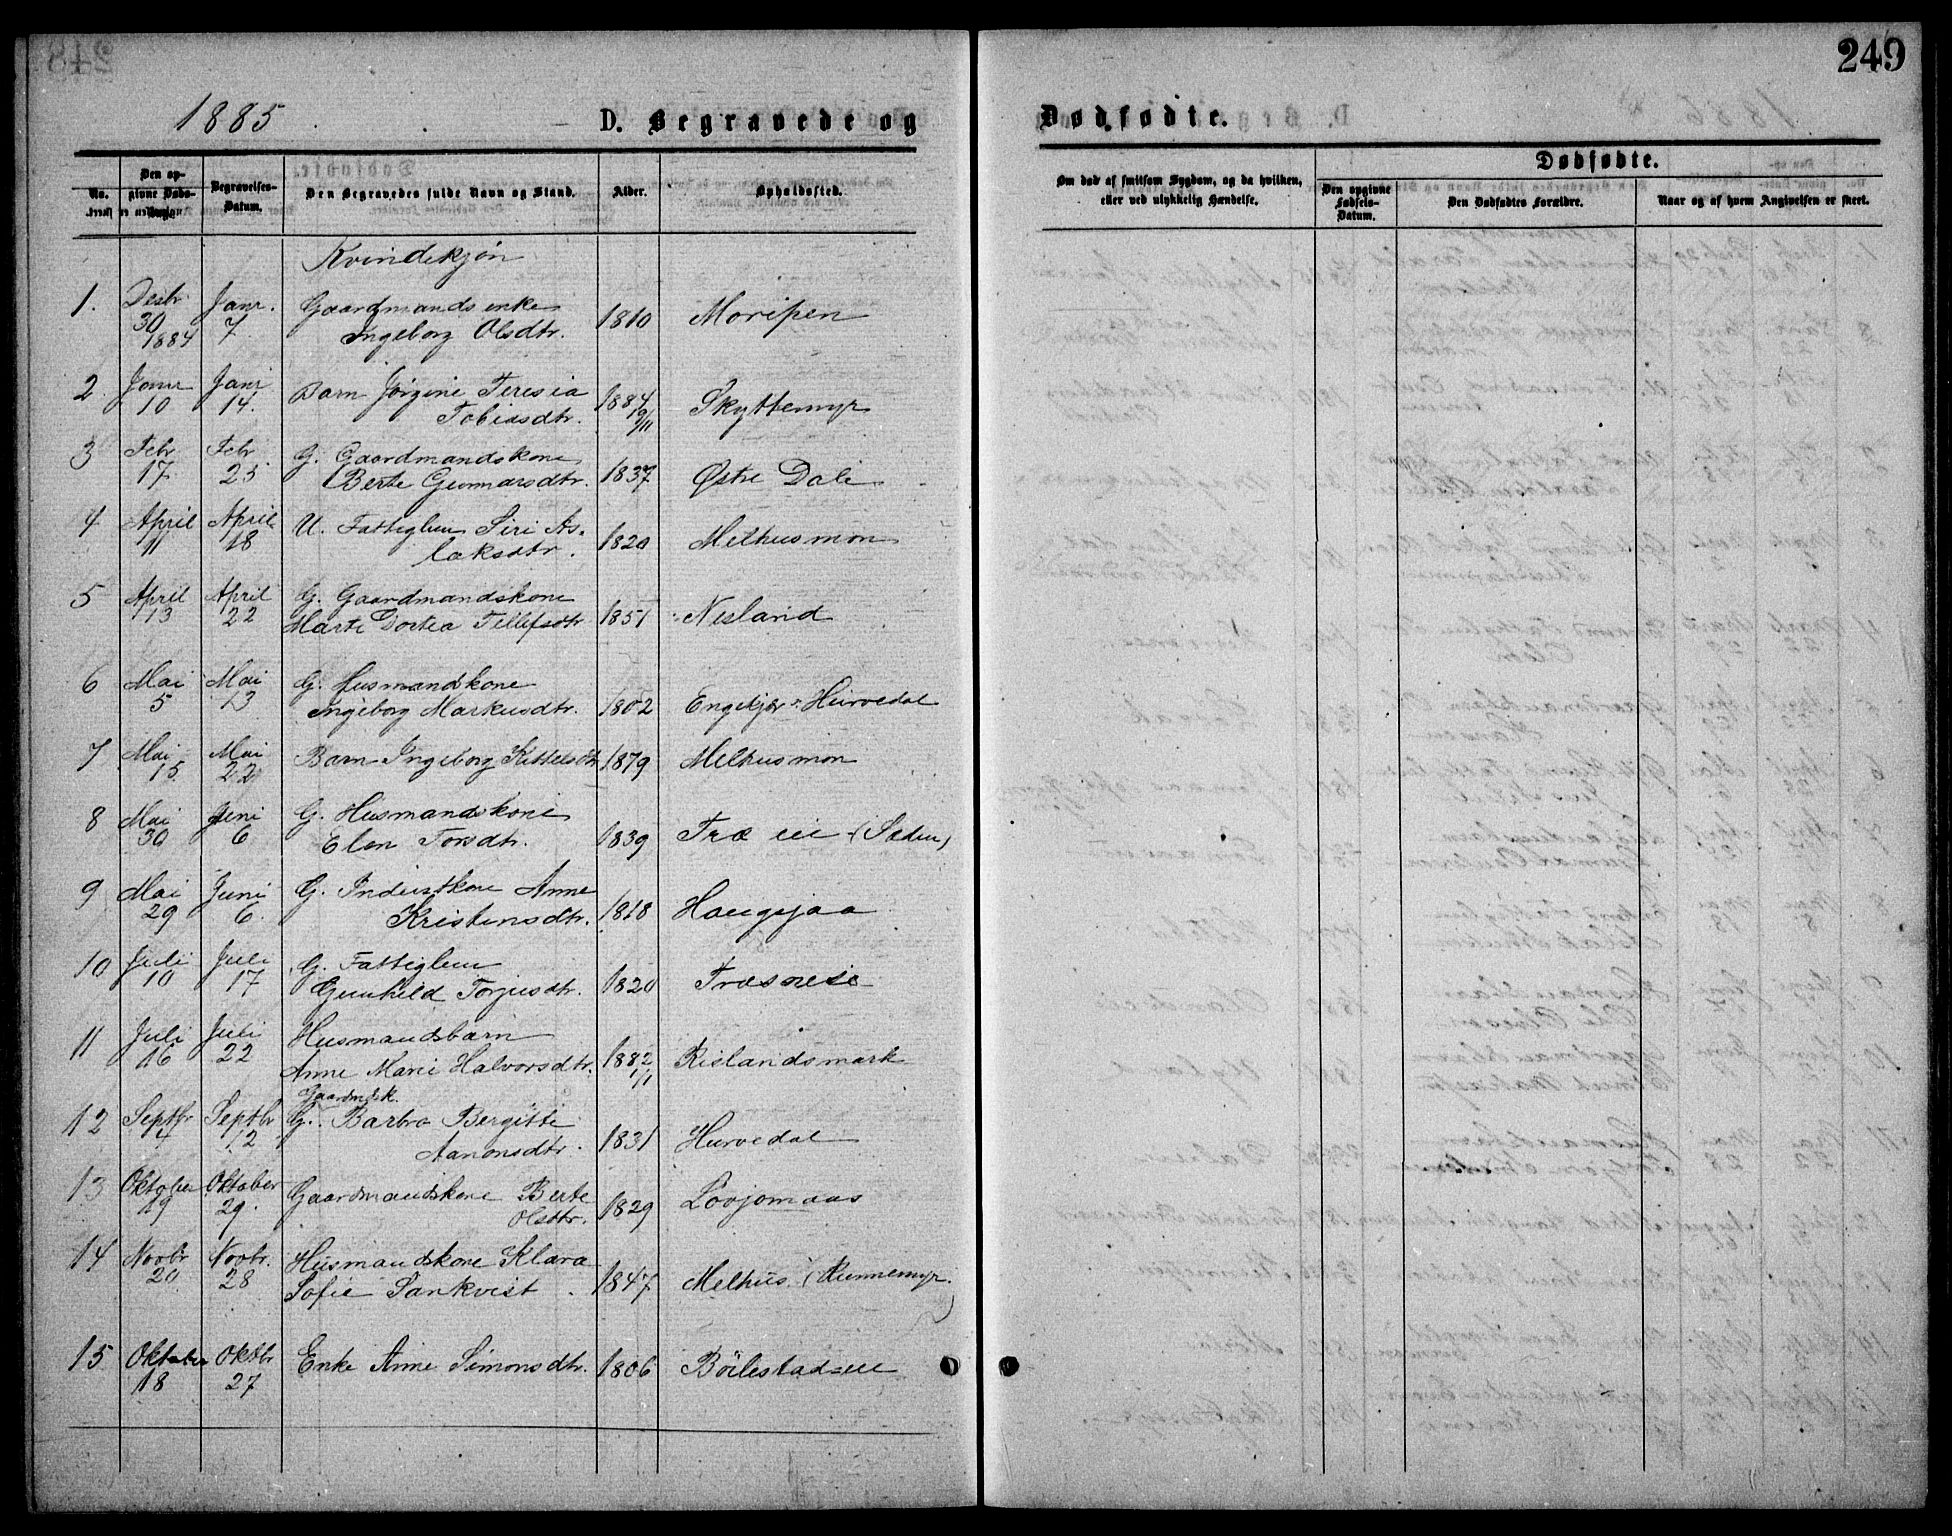 249
1885
D. Begravede og
Dødfødte.
No.
Den opgivne Dødsdatum.
Begravelses-Datum.
Den Begravedes fulde Navn og Stand.
Alder.
Opholdssted.
Om død af smitsom Sygdom, og da hvilken,
eller ved ulykkelig Hændelse.
Dødfødte.
Den opgivne
Fødsels-
Datum.
Den Dødfødtes Forældre.
Naar og af hvem Angivelsen er skeet.
Kvindekjøn
1. Desbr 30 1884 Janr. 7 Gaardmandsenke
Ingeborg Olsdtr. 1810 Moripen
2. Janr 10 Janr 14. Barn Jørgine Teresia
Tobiasdtr. 1884 19/11 Skyttemyr
3 Febr 17 Febr 25 G. Gaardmandskone
Berte Gunnarsdtr. 1837 Østre Dale
4 April 11 April 18 U. Fattiglem Siri As-
laksdtr. 1820 Melhusmon
5 April 13 April 22 G. Gaardmandskone
Marte Dortea Tellefsdtr 1851 Nesland
6 Mai 5 Mai 13 G. Husmandskone
Ingeborg Markusdtr. 1802 Engekjær Hurvedal
7 Mai 15 Mai 22 Barn Ingeborg Kittelsdtr 1879 Melhusmon
8 Mai 30 Juni 6 G. Husmandskone
Elen Torsdtr. 1839 Træ eie
9 Mai 29 Juni 6. G. Inderstkone Anne
Kristensdtr. 1818 Haugsjaa
10 Juli 10 Juli 17 G. Fattiglem
Gunhild Torjusdtr. 1820 Træsnese
11 Juli 16 Juli 22 Husmandsbarn
Anne Marie Halvorsdtr. 1882 1/1 Rislandsmark
12 Septbr 4 Septbr 12 Gaardmdsk.
G. Barbro Bergitte
Aanonsdtr. 1831 Hurvedal
13 Oktober 19 Oktober 29. Gaardmandskone Berte
Olsdtr. 1829 Lovjomaas
14 Novbr 20 Novbr. 28 Husmandskone Klara
Sofie Tankvist 1847 Melhus. (Runnemyr.)
15 Oktober 18 Oktbr 27 Enke Anne Simonsdtr. 1806 Böilestad eie